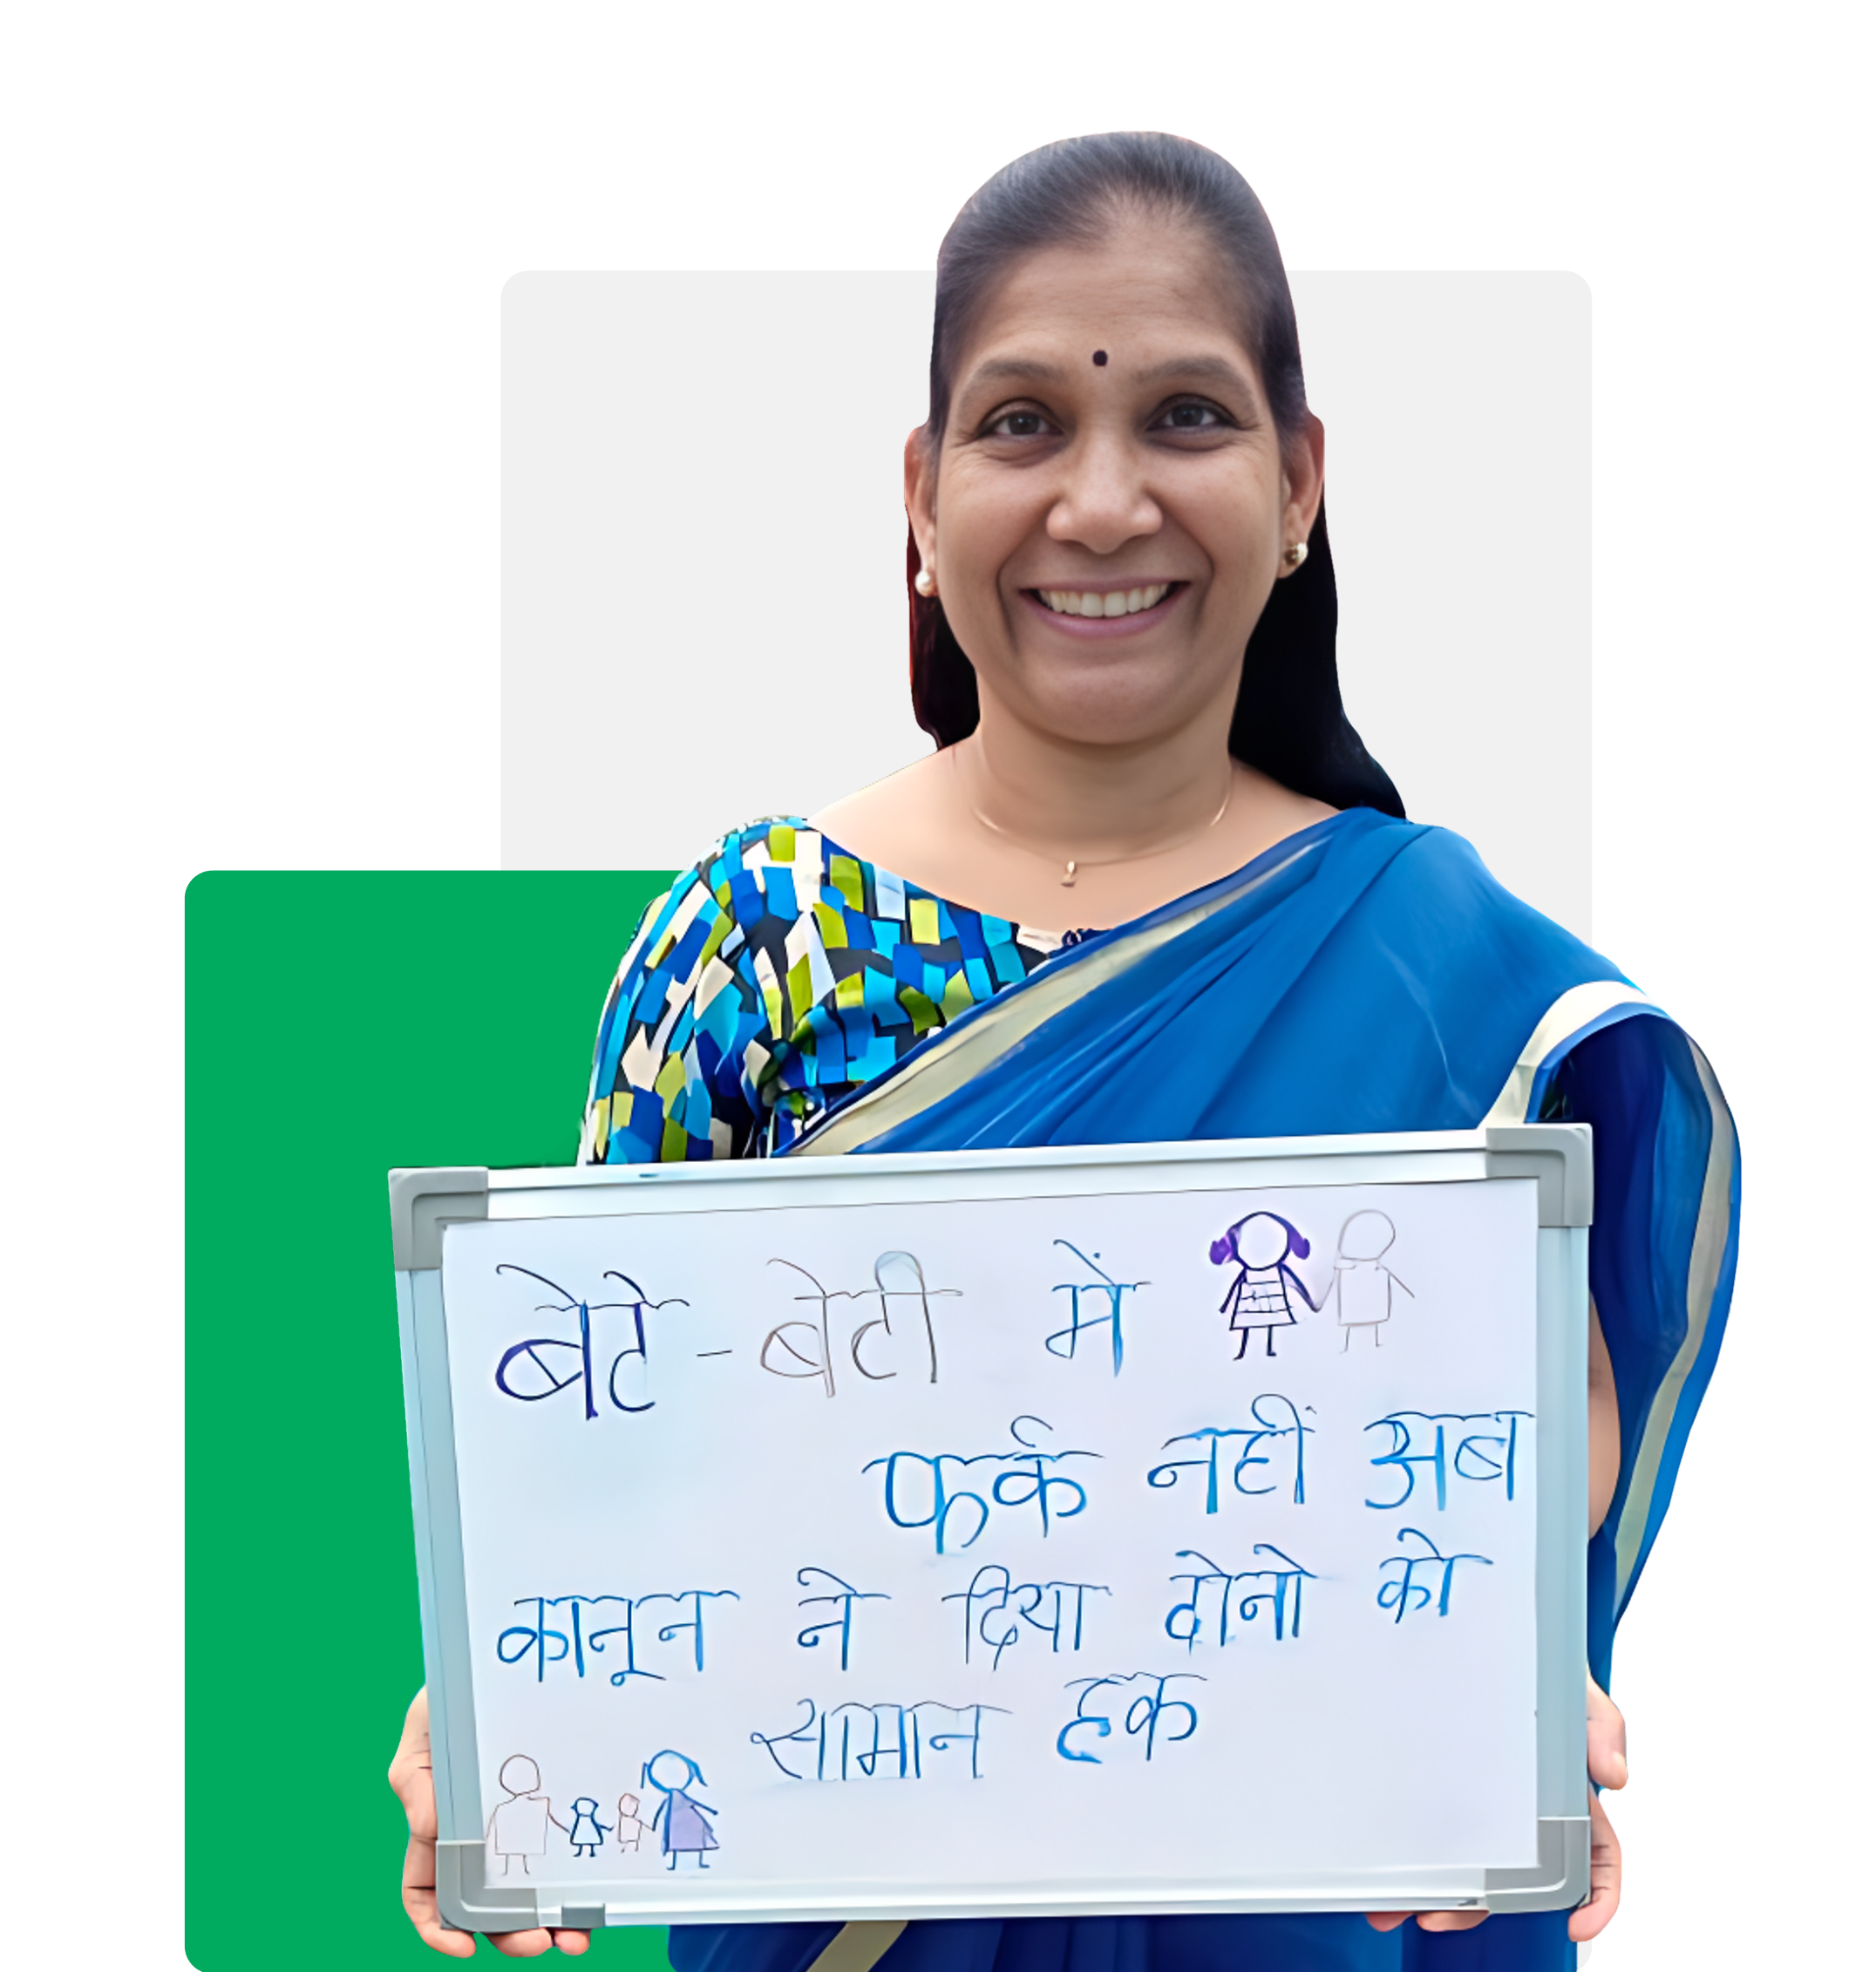 बेटे-बेटी में
फर्क नहीं अब
कानून ने दिया दोनो को
सामान हक